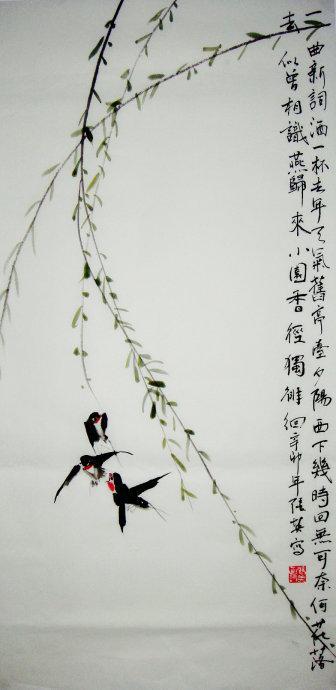 一曲新詞酒一杯去年天氣舊亭臺夕陽西下幾時回無可奈何花落
去似曾相識燕歸來小園香徑獨徘徊辛卯年陸英寫